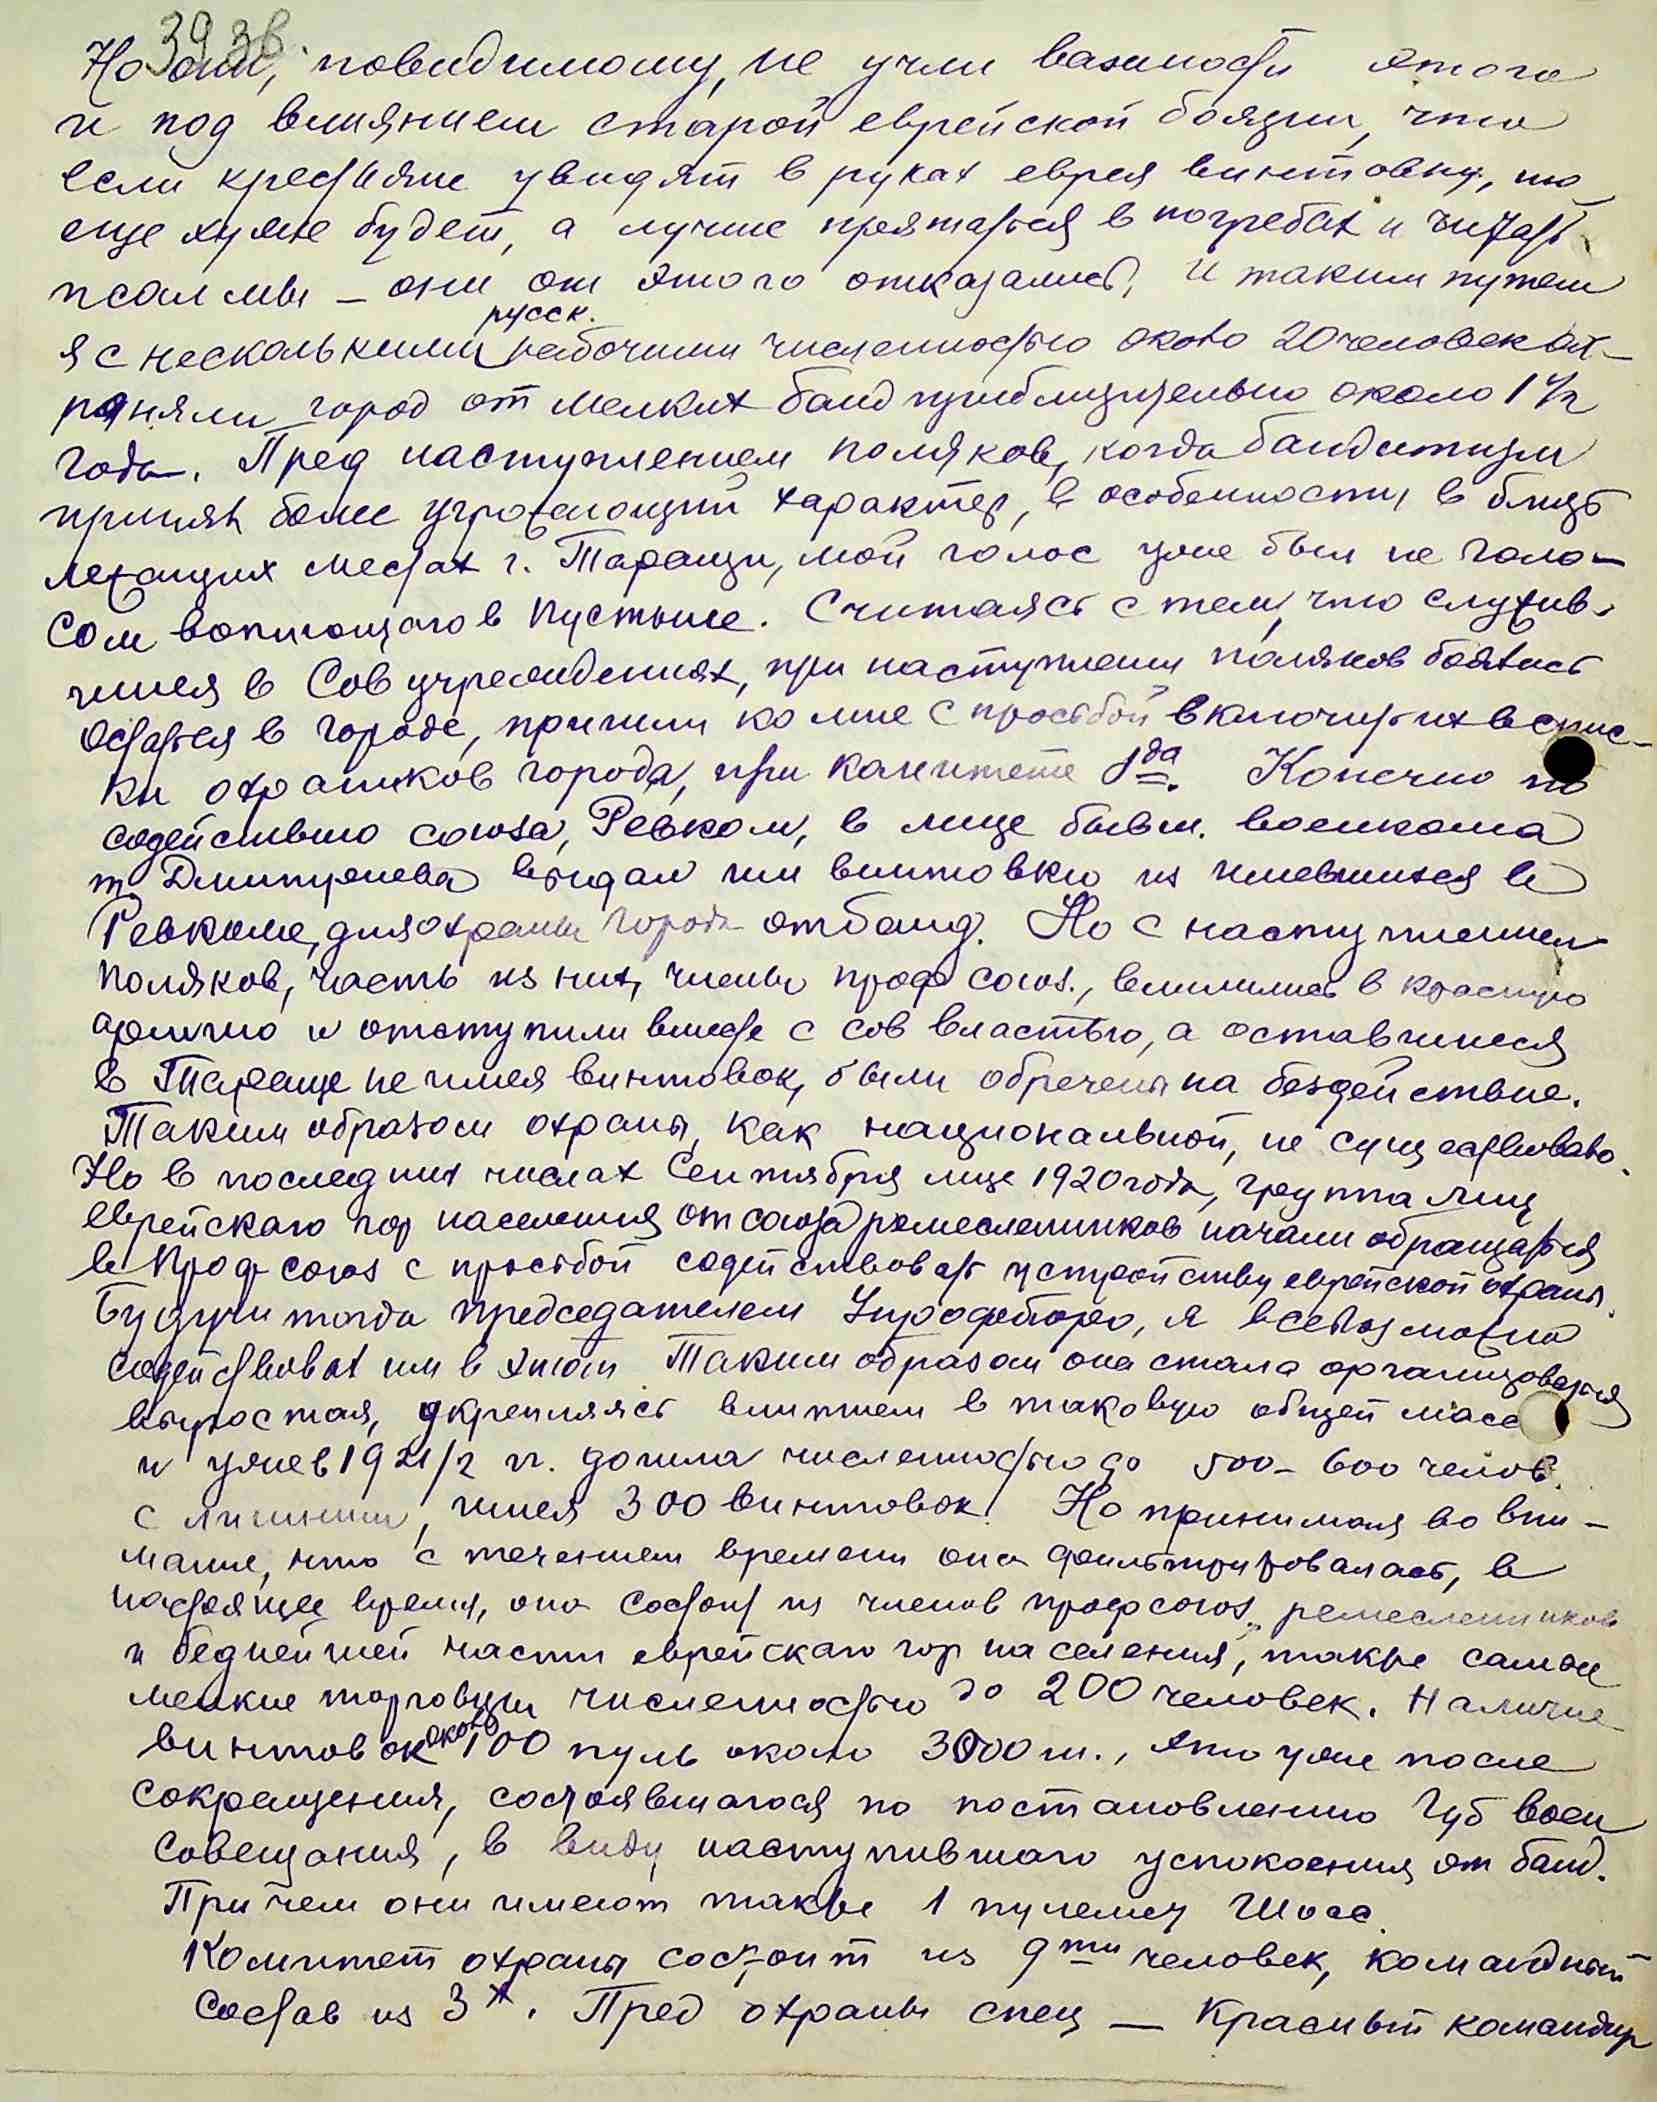 39 зв
Но они, повидимому, не учли важности этого
и под влиянием старой еврейской боязни, что
если крестьяне увидят в руках еврея винтовку, то
еще хуже будет, а лучше прятаться в погребах и читать
псалмы – они от этого отказались, и таким путем
русск.
я с несколькими рабочими численностью около 20 человек ох-
раняли город от мелких банд приблизительно около 1 1/2
года. Пред наступлением поляков, когда бандитизм
принял более угрожающий характер, в особенности в близ
лежащих местах г. Таращи, мой голос уже был не голо-
сом вопиющаго в пустыне. Считаясь с тем, что служив-
шиеся в Сов учреждениях, при наступлении поляков боялись
остаться в городе, пришли ко мне с просьбой включить их в спис-
ки охраников города, при комитете Iда. Конечно по
содействию союза, Ревком, в лице бывш. военкома
т Дмитриева выдал им винтовки из имевшихся в
Ревкоме, для охраны города от банд. Но с наступлением
поляков, часть из них, члены проф союз., влились в красную
армию и отступили вместе с сов властью, а оставшиеся
в Тараще не имея винтовок, были обречены на бездействие.
Таким образом охраны, как национальной, не существовало.
Но в последних числах Сентября м-це 1920 года, группа лиц
еврейскаго гор населения от союза ремеслеников начали обращаться
в Проф союз с просьбой содействовать устройству еврейской охраны.
Будучи тогда председателем Упрофбюро, я всевозможно
содействовал им в этом Таким образом она стала организоваться
выростая, укрепляясь влитием в таковую общей масс
и уже в 1921/2 гг. дошла численностью до 500–600 челов.
с лишним, имея 300 винтовок. Но принимая во вни-
мание, что с течением времени она фильтровалась, в
настоящее время, она состоит из членов профсоюз., ремеслеников
и беднейшей части еврейскаго гор населения, также самые
мелкие торговцы численностью до 200 человек. Наличие
винтовок около 100 пуль около 3000 ш., это уже после
сокращения, состоявшагося по постановлению Губ воен
совещания, в виду наступившаго успокоения от банд.
При чем они имеют также 1 пулемет Шоса.
Комитет охраны состоит из 9ти человек, командный
состав из 3х. Пред охраны спец — Красный командир